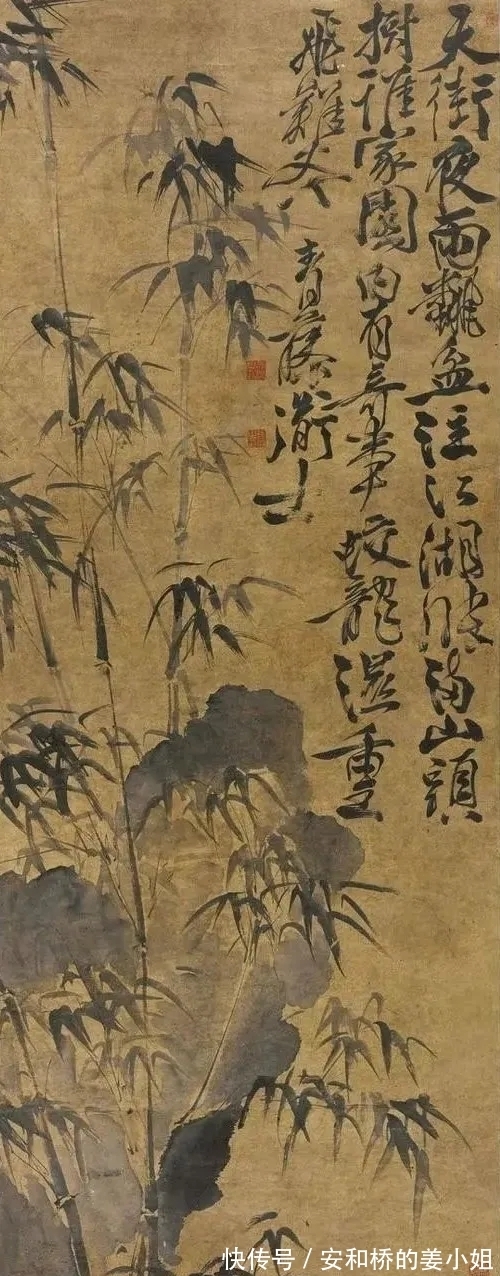 天街夜雨翻盆注江湖漲滿山頭
樹誰家園內有奇事蛟龍濕重
飛難去
青藤道士
快传号 / 安和桥的姜小姐